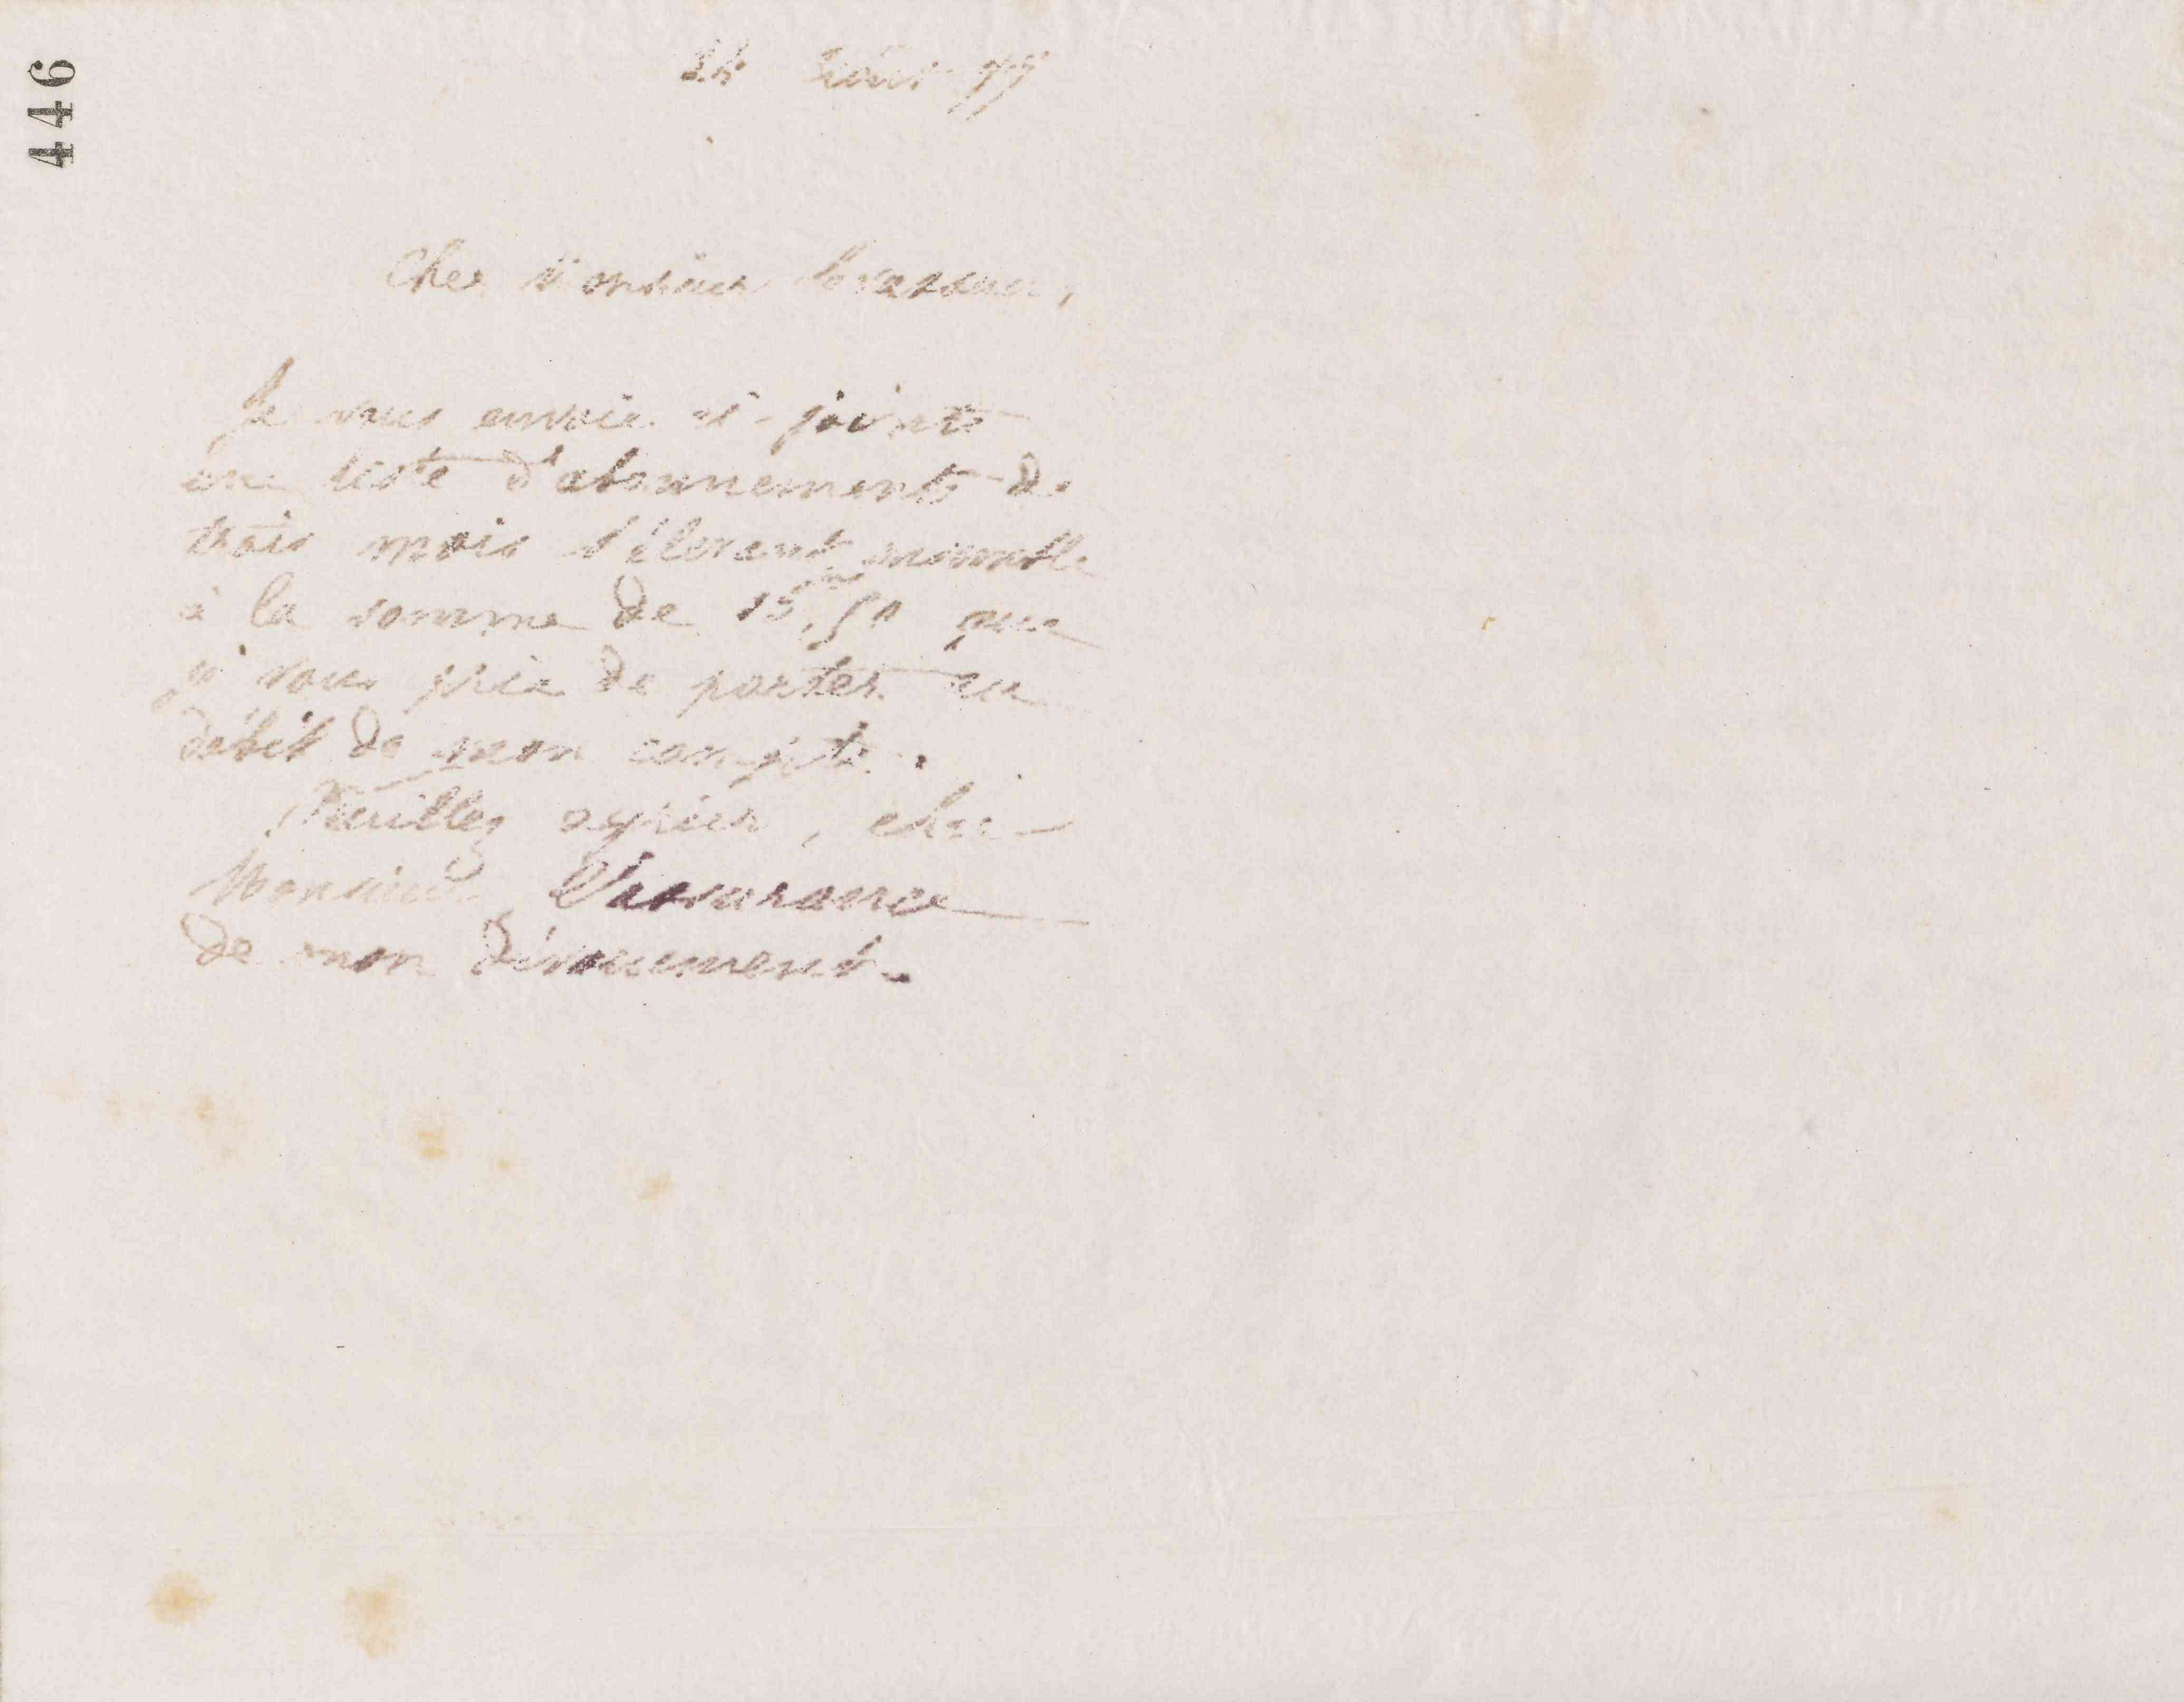 446
24 77
Cher Monsieur
Je vous envoie ci-joint
une liste d'abonnements de
trois mois s'élevant ensemble
à la somme de 15,50 que
je vous prie de porter au
débit de mon compte.
Veuillez agréer, cher
Monsieur l'assurance
de mon dévouement.